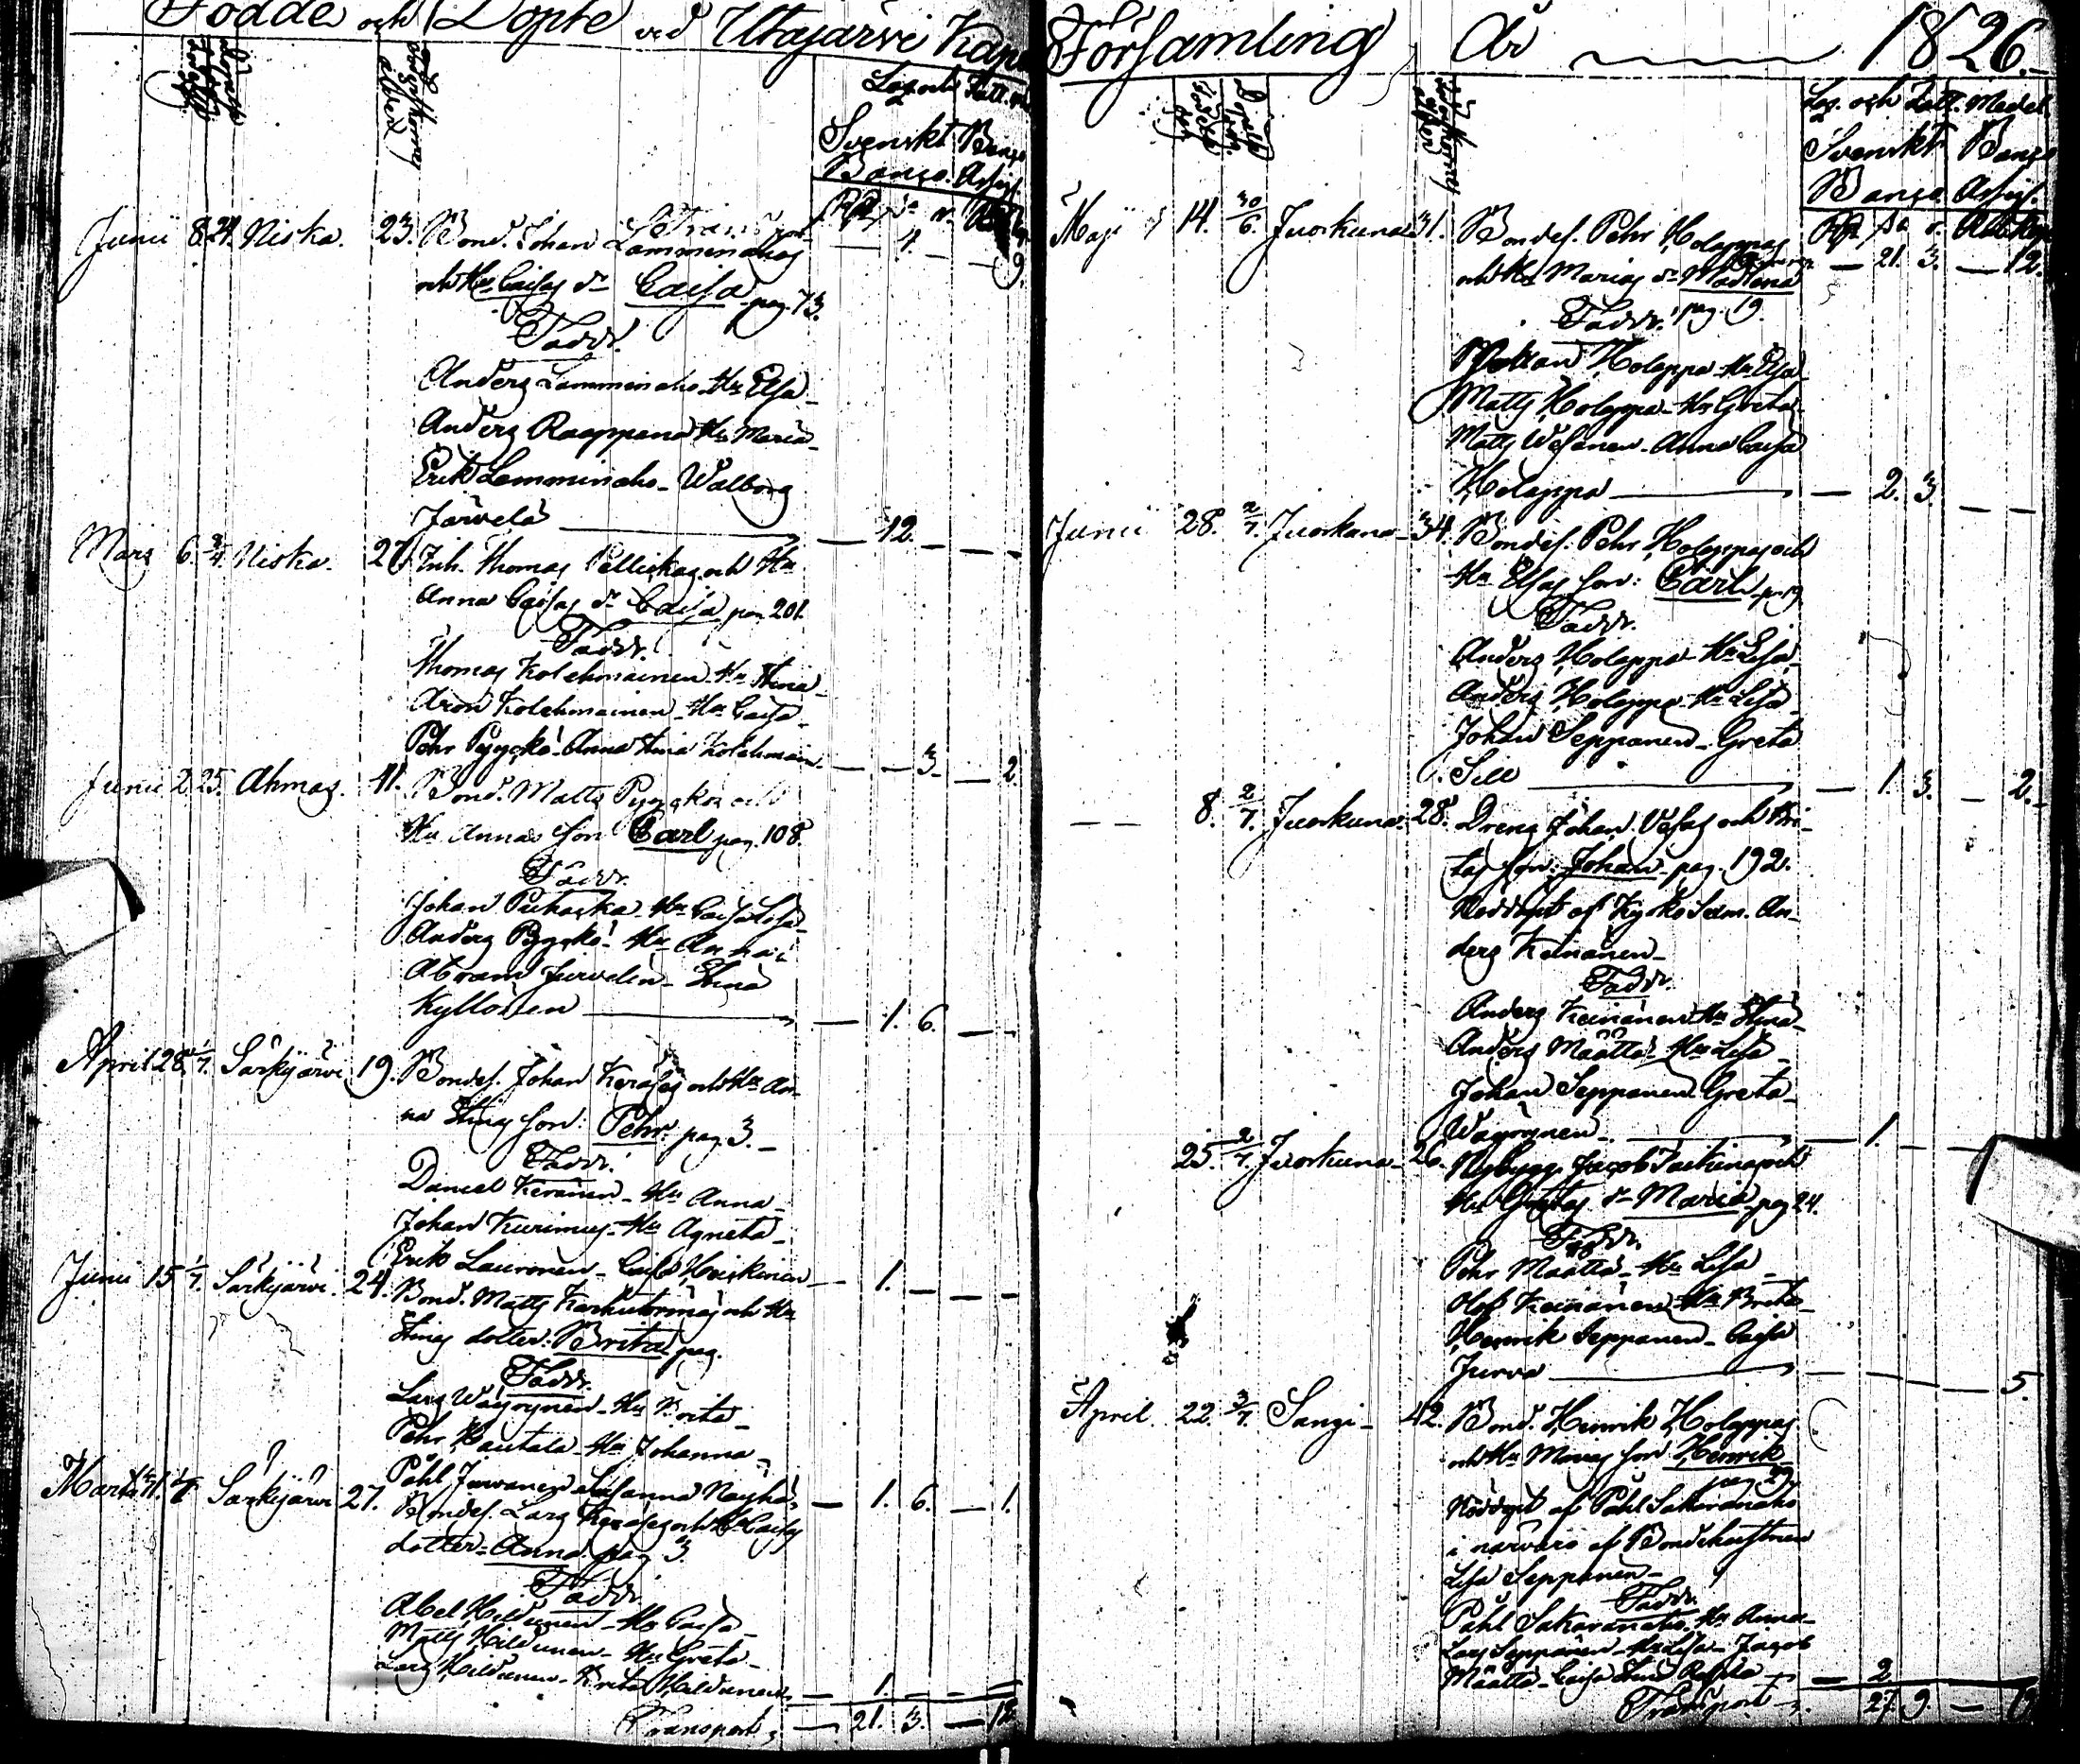 Födde och Döpte vid Utajärvi Kap
Svenskt Banco
Banco. Assig.
Transport
4. 9.
Junii 8 24. Niska. 23. Bond. Johan Lamminahos
och Hu Caisas dr Caisa pag. 73.
Faddr.
Anders Lamminaho Hu Elsa
Anders Raappana Hu Maria
Erik Lamminaho Walborg
Järvelä 12.
Mars 6. 2/4 Niska. 27. Inh. Thomas Pelliskas och Hu
Anna Caisas dr Caisa pag 201.
Faddr.
Thomas Kolehmainen Hu Stina
Aron Kolehmainen Hu Caisa
Pehr Pyyckö Anna Stina Kolehmain 3. 2
Junii 2 25. Ahmas. 41. Bond. Matts Pyyckös och
Hu Annas son Carl pag. 108.
Faddr.
Johan Puhacka Hu Caisa Lisa
Anders Pyyckö Hu Anna
Abram Jurvelin Stina
Kyllönen 1. 6.
April 28. 1/7. Särkijärvi 19. Bondes. Johan Keräses och Hu An-
na Stinas son: Pehr. pag. 3.
Faddr.
Daniel Keränen Hu Anna
Johan Kurimus Hu Agneta
Erik Lauronen Caisa Heiskanen 1.
Junii 15 1/7. Särkijärvi. 24. Bond. Matts och Hu
Stinas dotter: Brita pag.
Faddr.
Lars Wäyrynen Hu Brita
Pehr Rautala Hu Johanna
Påhl Juvanen Susanna 1. 6. 1.
Särkijärvi 27. Bondes. Lars Keräses och Hu Caisas
dotter Anna pag 3
Faddr.
Abel Hildunen Hu Caisa
Matts Hildunen Hu Greta
Lars Hildunen Brita Hildunen 1.
Transport 21. 3. 12
Församling År 1826.
Lös. och Fatt. Medel
Svenskt Banco
Banco Assig.
21. 3. 12.
Maji 14. 30/6. Juorkuna 31. Bondes. Pehr Holappas
och Hu Marias dr Madlena
pag. 19.
Faddr.
Johan Holappa Hu Elsa
Matts Holappa Hu Greta
Matts Wesanen Anna Caisa
Holappa 2. 3.
Junii 28. 2/7. Juorkuna 34. Bondes. Pehr Holappas och
Hu Elsas son: Carl pag 19
Faddr.
Anders Holappa Hu Lisa
Anders Holappa Hu Lisa
Johan Seppänen Greta
Sill 1. 3. 2.
8. 2/7. Juorkuna. 28. Dreng Johan Vesas och Bri-
tas son: Johan pag. 192.
Nöddöpt af Kyrko Sexm. An-
ders Keinänen
Faddr.
Anders Keinänen Hu Stina
Anders Määttä Hu Lisa
Johan Seppänen Greta
Wäyrynen 1.
25. 2/7. Juorkuna 26. Nybygg. Jacob och
Hu Gretas dr Maria pag 24.
Faddr.
Pehr Määttä Hu Lisa
Olof Keinänen Hu Brita
Henrik Seppänen Caisa
Jurva 5.
April. 22. 2/7. Sangi 42. Bond. Henrik Holappas
och Hu Marias son Henrik
pag 29.
Nöddöpt af Påhl Sakaranaho
i närvaro af Bondehustrun
Lisa Seppänen
Faddr.
Påhl Sakaranaho Hu Anna
Lars Seppänen Hu Lisa Jacob
Määttä Caisa Stina 2
Transport 27. 9.